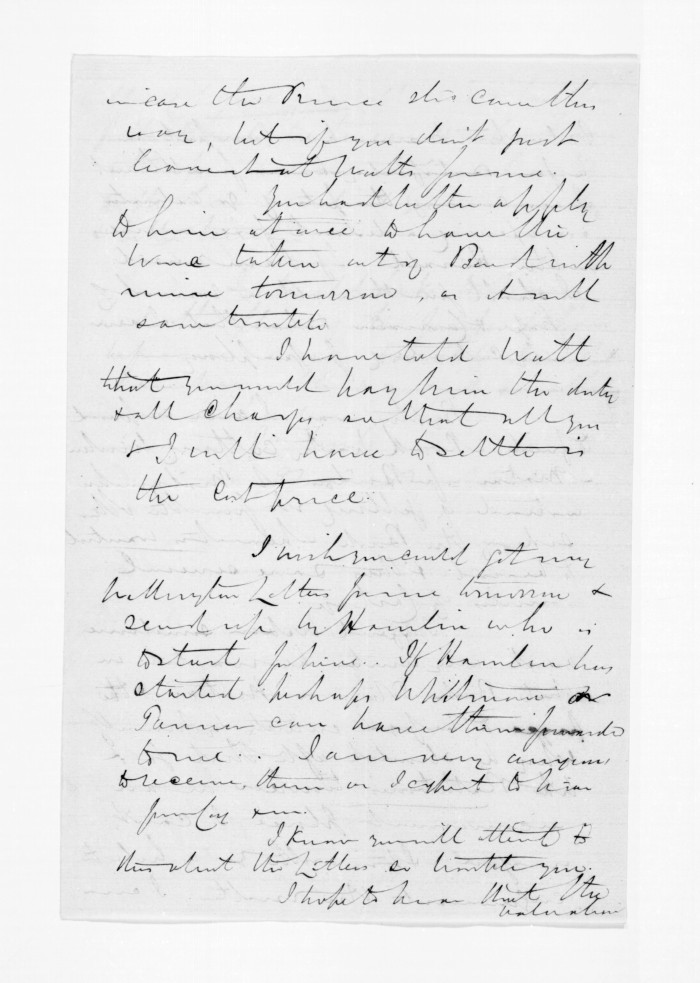 in case the Prince sho come this
way, but if you don't just
leave it at Watts for me.
You had better apply
to him at once to have the
Wine taken out of Bond with
mine tomorrow, as it will
save trouble
I have told Watt
that you would pay him the duty
& all Charges so that all you
& I will have to settle is
the Cost price.
I wish you could get my
Wellington Letters for me tomorrow &
send up by Hamlin who is
to start for here.. If Hamlin has
started perhaps Whitmore or
Tanner can have them forwarded
to me.. I am very anxious
to receive them as I expect to hear
from
I know you will attend to
this about the Letters so trouble you.
I hope to hear that the
valuation